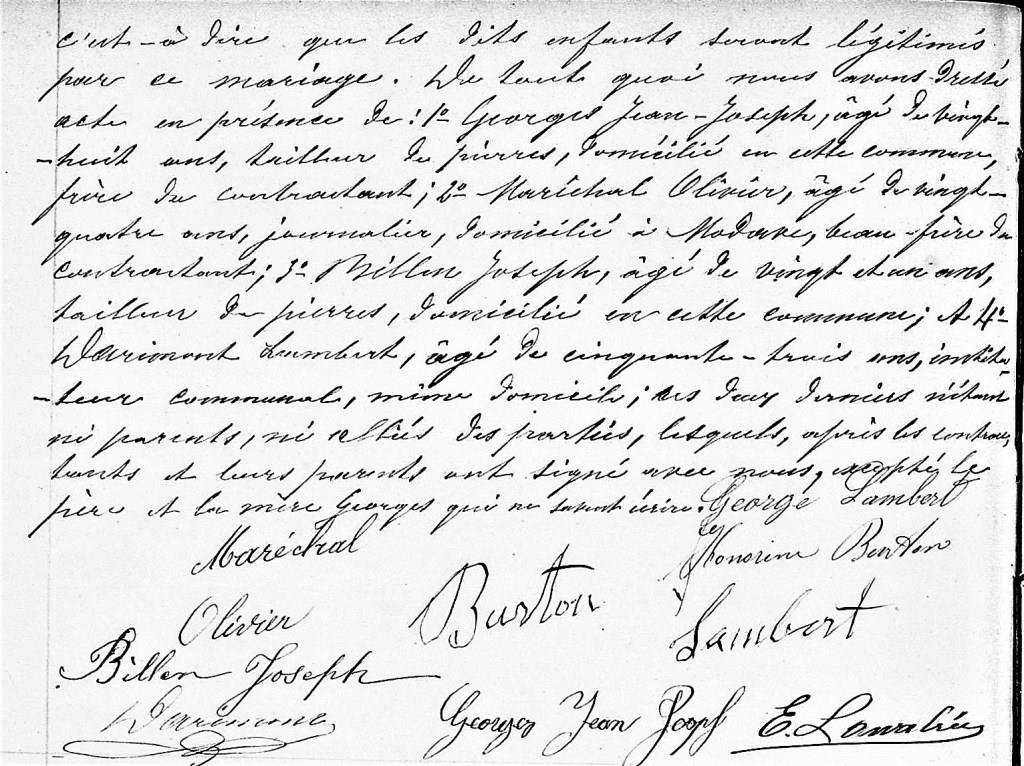 c'est-à dire que les dits enfants seront légitimés
par ce mariage. De tout quoi nous avons dressé
acte en présence de: 1º Georges Jean-Joseph, âgé de vingt-
-huit ans, tailleur de pierres, domicilié en cette commune,
frère du contractant; 2º Maréchal Olivier, âgé de vingt-
quatre ans, journalier, domicilié à Modave, beau-frère du
contractant; 3º Billen Joseph, âgé de vingt et un ans,
tailleur de pierres, domicilié en cette commune; et 4º
Darimont Lambert, âgé de cinquante-trois ans, institu-
-teur communal, même domicile; ces deux derniers n'étant
ni parents, ni alliés des parties, lesquels, après les contrac
tants et leurs parents ont signé avec nous, excepté le
père et la mère Georges qui ne savent écrire. George Lambert
Maréchal Honorine Burton
Olivier Burton Lambert
Billen Joseph
Darimont Georges Jean Joseph E.